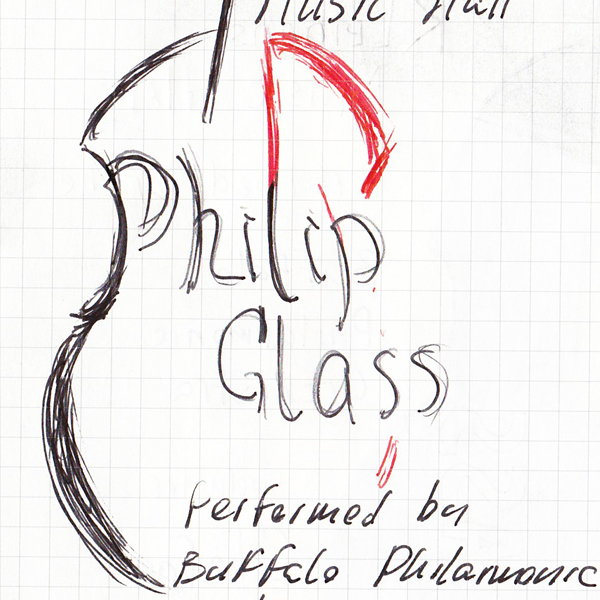 Music Hall
Philip
Glass
Performed by
Buffalo Philarmonic